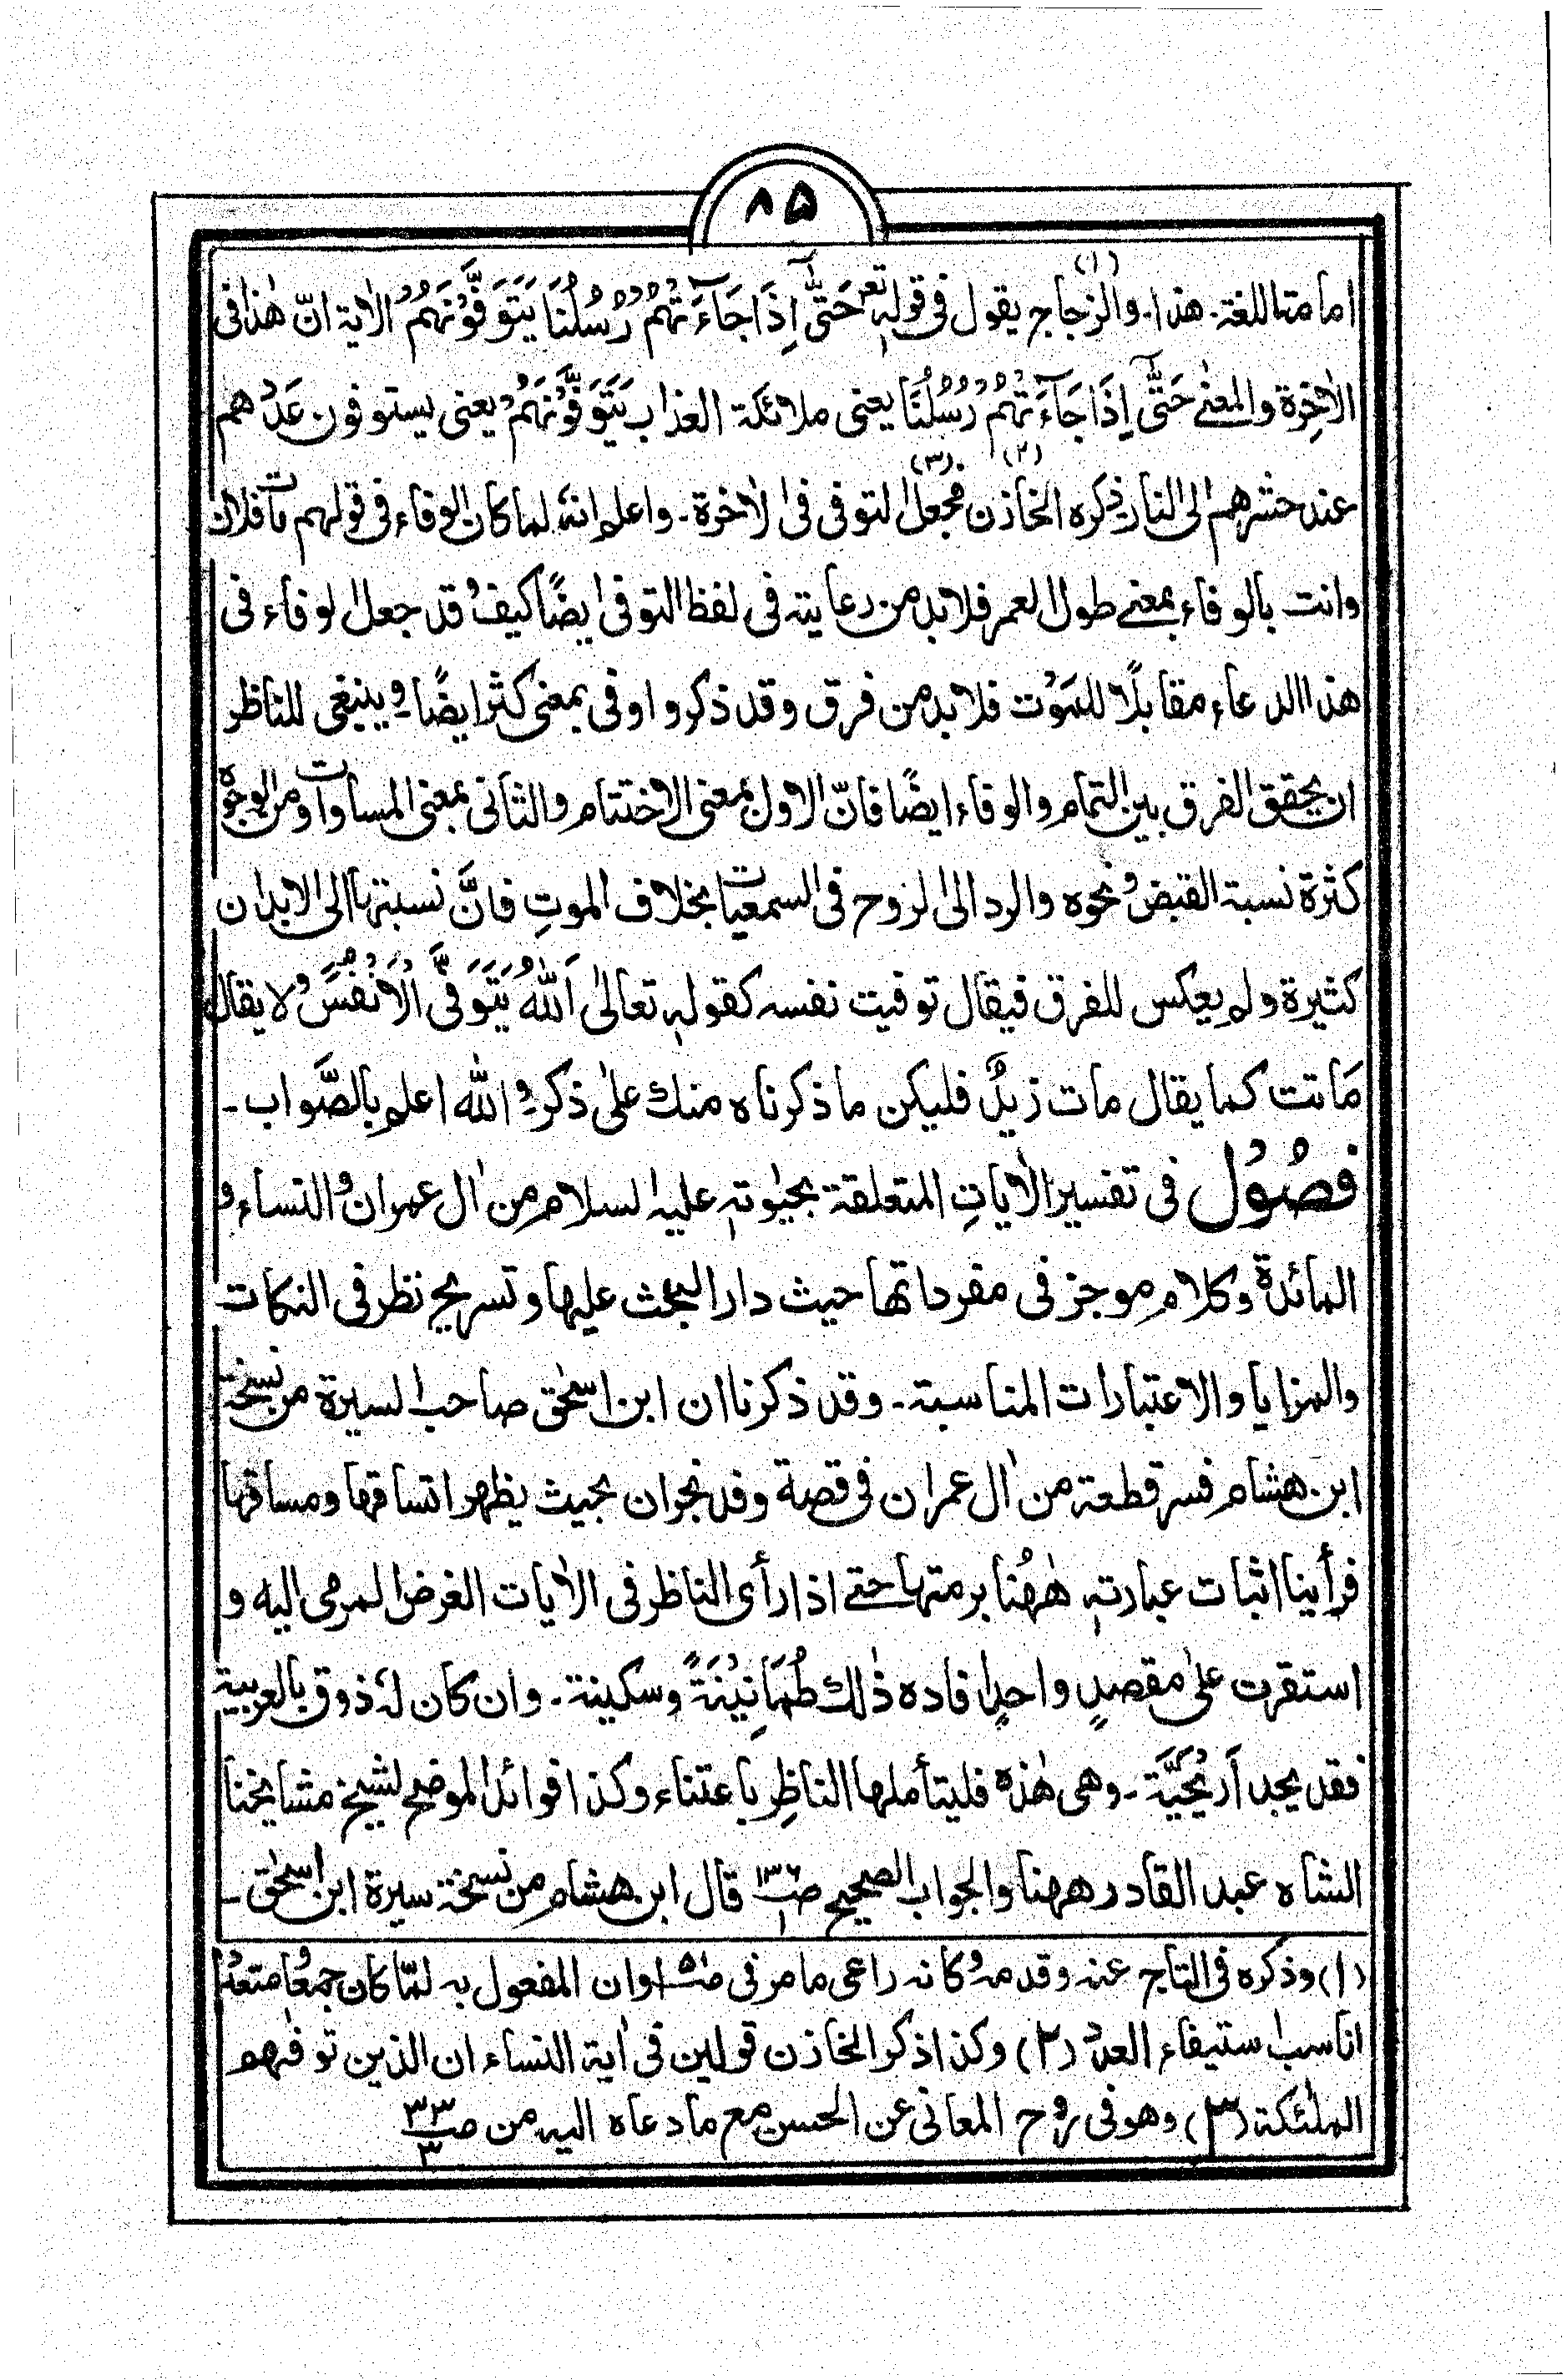 ۸۵
امامة اللغة۔ هذا۔ والزجاج (١) يقول فى قوله تع حَتّٰٓى اِذَا جَآءَتْهُمْ رُسُلُنَا يَتَوَفَّوْنَهُمْ الاٰية انّ هٰذا فى
الاٰخِرة والمعنٰے حَتّٰٓى اِذَا جَآءَتْهُمْ رُسُلُنَا يعنى ملائكة العذاب يَتَوَفَّوْنَهُمْ يعنى يستوفون عَدَدهم
عند حشرهم الى النار ذكره الخازن (٢) فجعل (٣) التوفى فى الاٰخرة۔ واعلم انهٗ لما كان الوفاء فى قولهم مات فلان
وانت بالوفاء بمعنے طول العمر فلابد من رعايته فى لفظ التوفى ايضًا كيف وقد جعل الوفاء فى
هذا الدعاء مقابلًا للمَوْت فلابد من فرق وقد ذكروا اوفى بمعنى كثر ايضًا۔ وينبغى للناظر
ان يحقق الفرق بين التمام والوفاء ايضًا فانّ الاول بمعنى الاختتام والثانى بمعنى المساوات ومن الوجوه
كثرة نسبة القبض ونحوه والرد الى الروح فى السمعيات بخلاف الموتِ فانَّ نسبتها الى الابدان
كثيرة ولم يعكس للفرق فيقال توفيت نفسه كقولهٖ تعالىٰ اَللّٰهُ يَتَوَفَّى الْاَنْفُسَ ولا يقال
مَاتت كما يقال مات زيدٌ فليكن ما ذكرناه منك علىٰ ذكر والله اعلم بالصَّواب۔
فصُوْل فى تفسير الاٰياتِ المتعلقة بحيٰوتهٖ عليه السلام من اٰل عمران والنساء و
المائدة وكلام موجز فى مفرداتها حيث دار البحث عليها وتسريح نظر فى النكات
والمزايا والاعتبارات المناسبة۔ وقد ذكرنا ان ابن اسحٰق صاحب السيرة من نسخة
ابن هشام فسر قطعة من اٰل عمران فى قصة وفد نجران بحيث يظهر اتساقها ومساقها
فرأينا اثبات عبارتهٖ هٰهُنا برمتها حتے اذا رأى الناظر فى الاٰيات الغرض المرمى اليه و
استقرت علىٰ مقصدٍ واحدٍ افاده ذٰلك طُمَانِيْنَةً وسكينة۔ وان كان لهٗ ذوق بالعربية
فقد يجد اَرْيَحِيَّة۔ وهى هٰذه فليتأملها الناظِر باعتناء وكذا فوائد الموضح لشيخ مشايخنا
الشاه عبد القادر ههنا والجواب الصحيح ص١٣٦/١ قال ابن هشام من نسخة سيرة ابن اسحٰق۔
(١) وذكره فى التاج عنه وقدمه وكانه راعى ما مر فى وان المفعول به لمّا كان جمعًا متعددًا
ناسب استيفاء العدد (٢) وكذا ذكر الخازن قولين فى اٰية النساء ان الذين توفٰهم
الملٰئكة (٣) وهو فى روح المعانى عن الحسن مع ما دعاه اليه من ص٣٣/٣